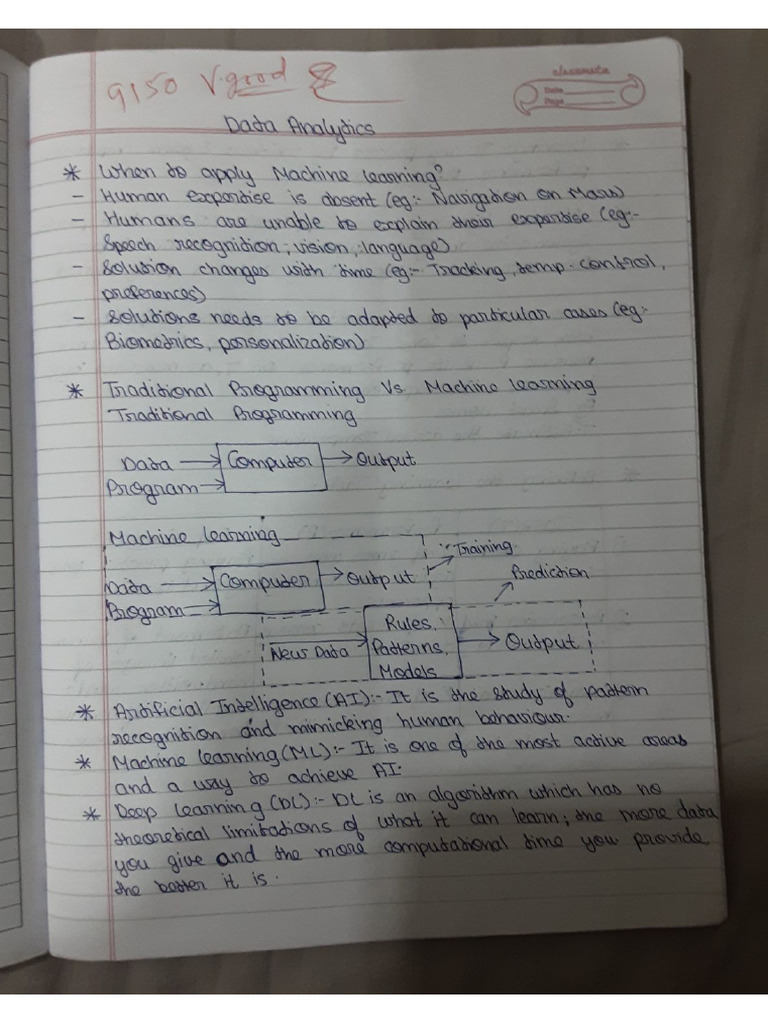 9150 V.good
classmate
Date
Page
Data Analytics
* When to apply Machine learning?
- Human expertise is absent (eg:- Navigation on Mars)
- Humans are unable to explain their expertise (eg:-
Speech recognition, vision, language)
- Solution changes with time (eg:- Tracking, temp. control,
preferences)
- Solutions needs to be adapted to particular cases (eg:-
Biometrics, personalization)
* Traditional Programming Vs Machine learning
Traditional Programming
Data → Computer → Output
Program →
Machine learning
Training
Data → Computer → Output
Prediction
Program →
New Data → Rules, Patterns, Models → Output
* Artificial Intelligence (AI):- It is the study of pattern
recognition and mimicking human behaviour.
* Machine learning (ML):- It is one of the most active areas
and a way to achieve AI.
* Deep Learning (DL):- DL is an algorithm which has no
theoretical limitations of what it can learn; the more data
you give and the more computational time you provide,
the better it is.